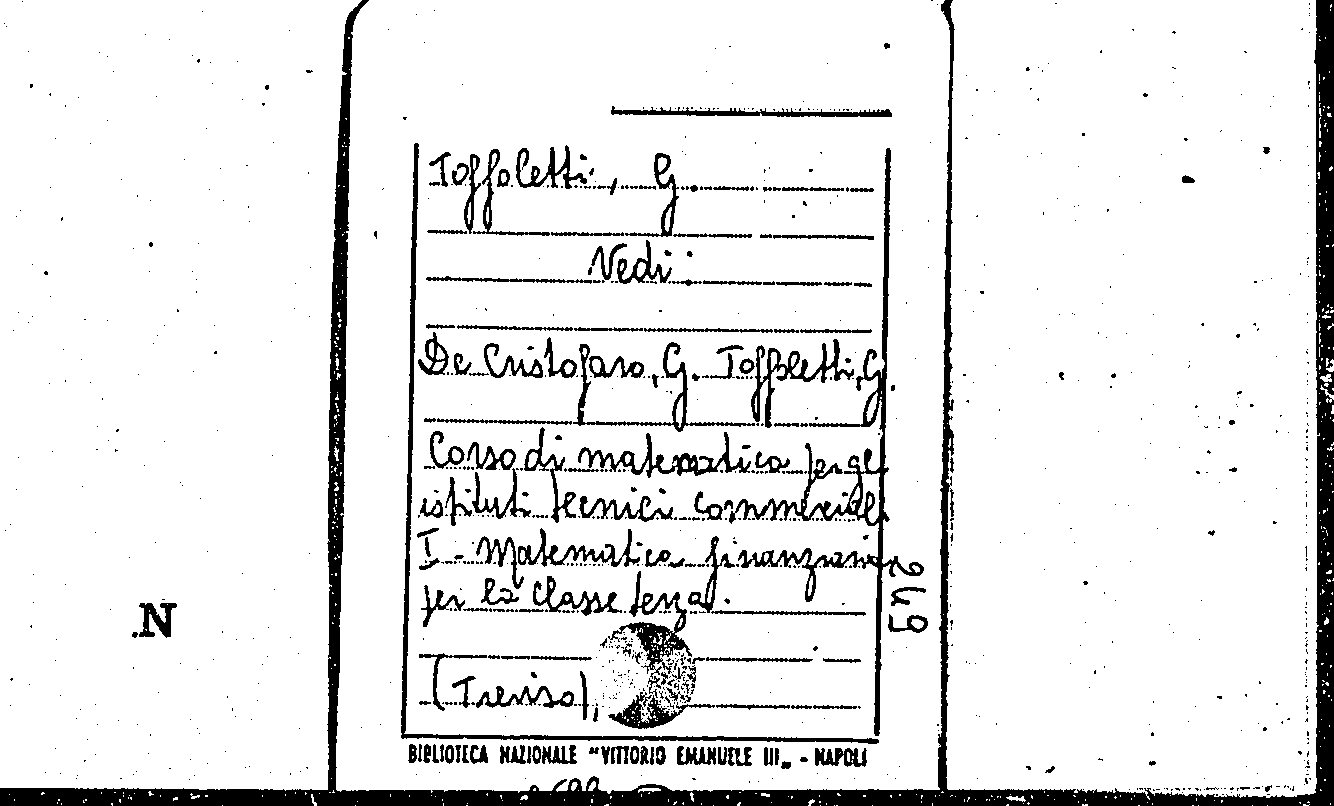 Toffoletti, G.
Vedi:
De Cristofaro, G. Toffoletti, G.
Corso di matematica per gli
istituti tecnici commerciali
I - Matematica finanziaria
per la classe terza.
(Treviso),
249
N
BIBLIOTECA NAZIONALE "VITTORIO EMANUELE III„ - NAPOLI